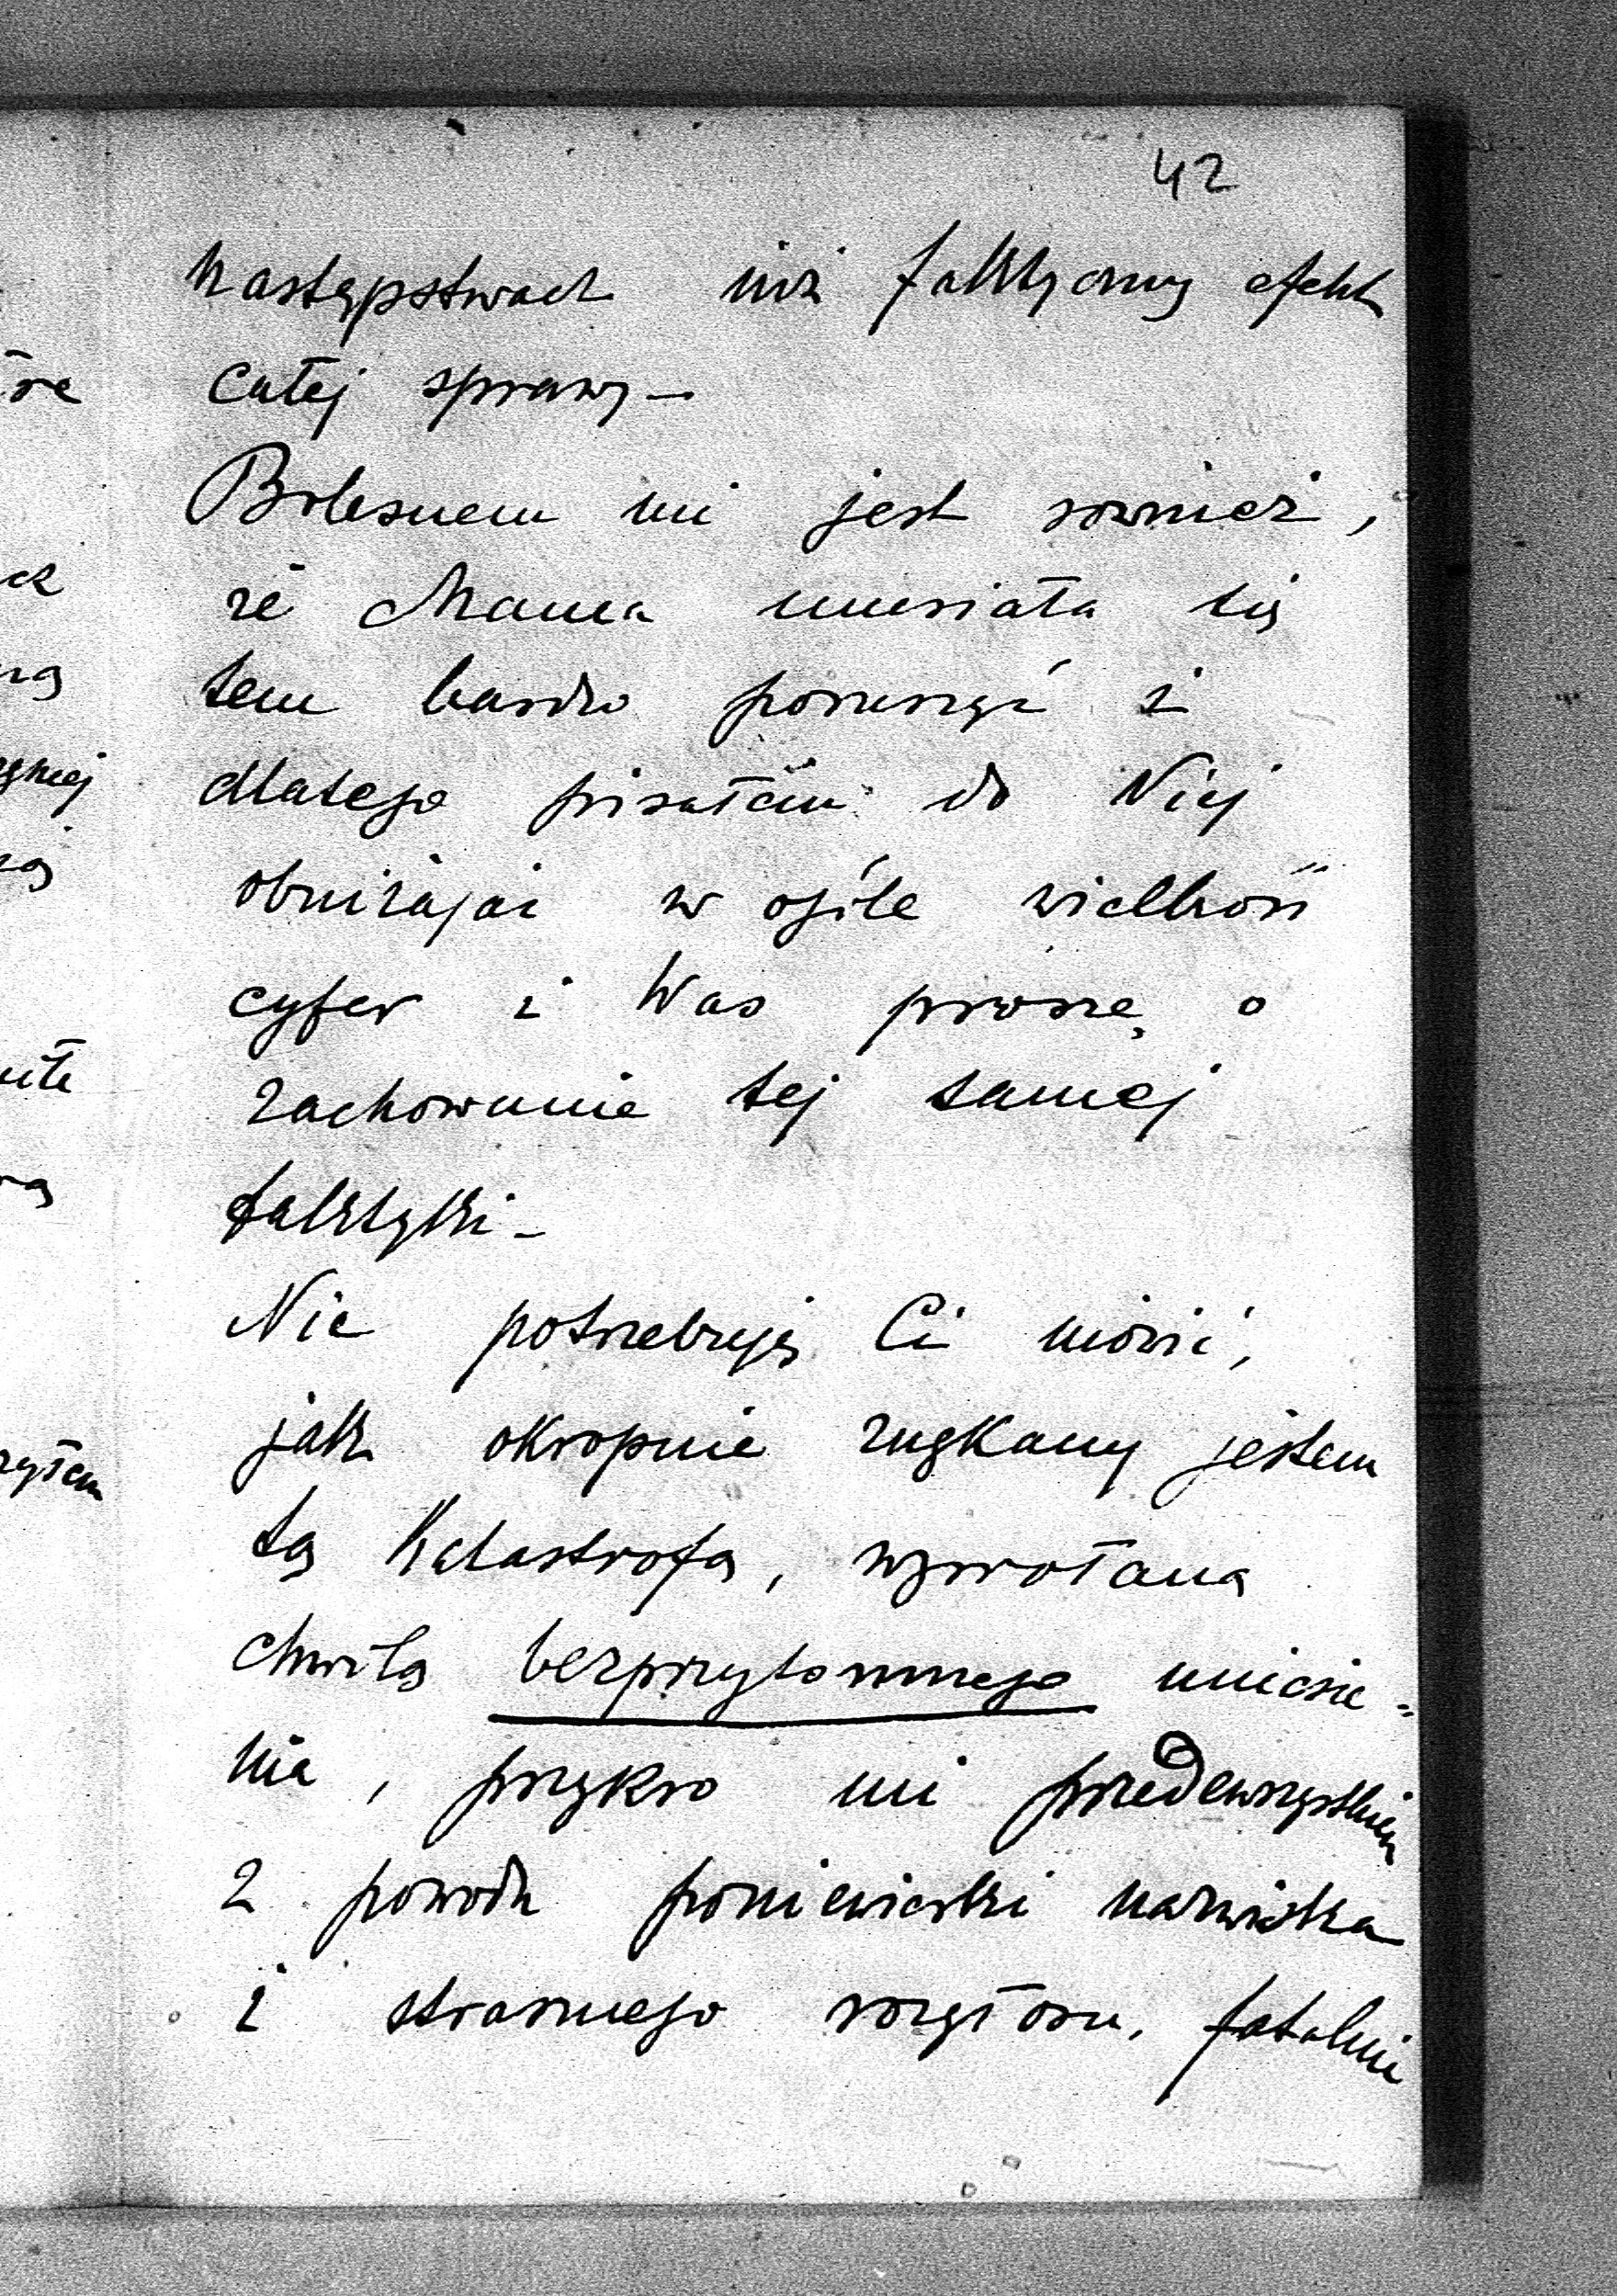 42
następstwach niż faktyczny efekt
całej sprawy –
Bolesnem mi jest również,
że Mama musiała się
tem bardzo poruszyć i
dlatego pisałem do Niej
obniżając w ogóle wielkość
cyfer i Was proszę o
zachowanie tej samej
taktyki –
Nie potrzebuję Ci mówić,
jak okropnie znękany jestem
tą Katastrofą, wywołaną
chwilą bezprzytomnego uniesie=
nia, przykro mi przedewszystkiem
z powodu poniewierki nazwiska
i strasznego rozgłosu, fatalnie